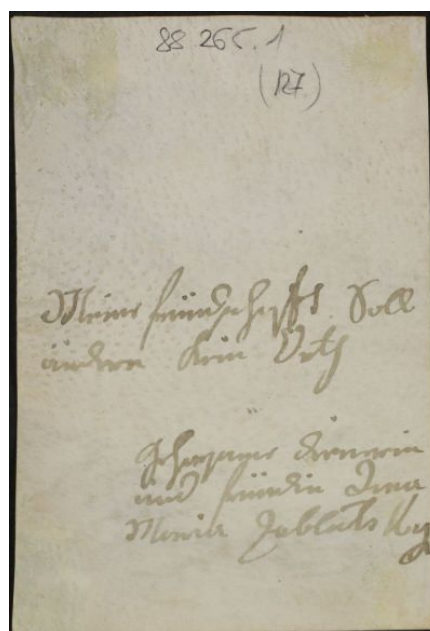 88 265.1
(127.)
Meine freündschafft Soll
ändern Kein Orth
gehorsame dienerin
und freündin Anna
Maria Jablatsky